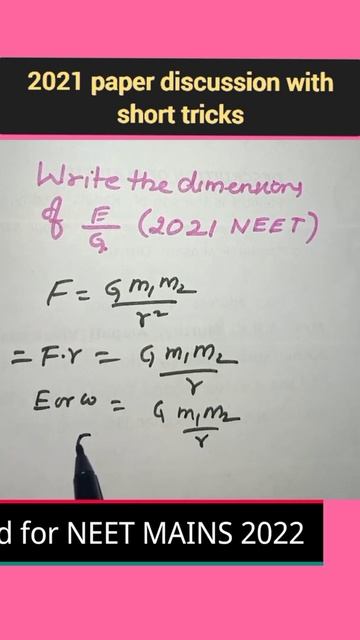 2021 paper discussion with
short tricks
Write the dimensions
of E/G (2021 NEET)
F = G m₁m₂/r²
= F.r = G m₁m₂/r
E or ω = G m₁m₂/r
d for NEET MAINS 2022